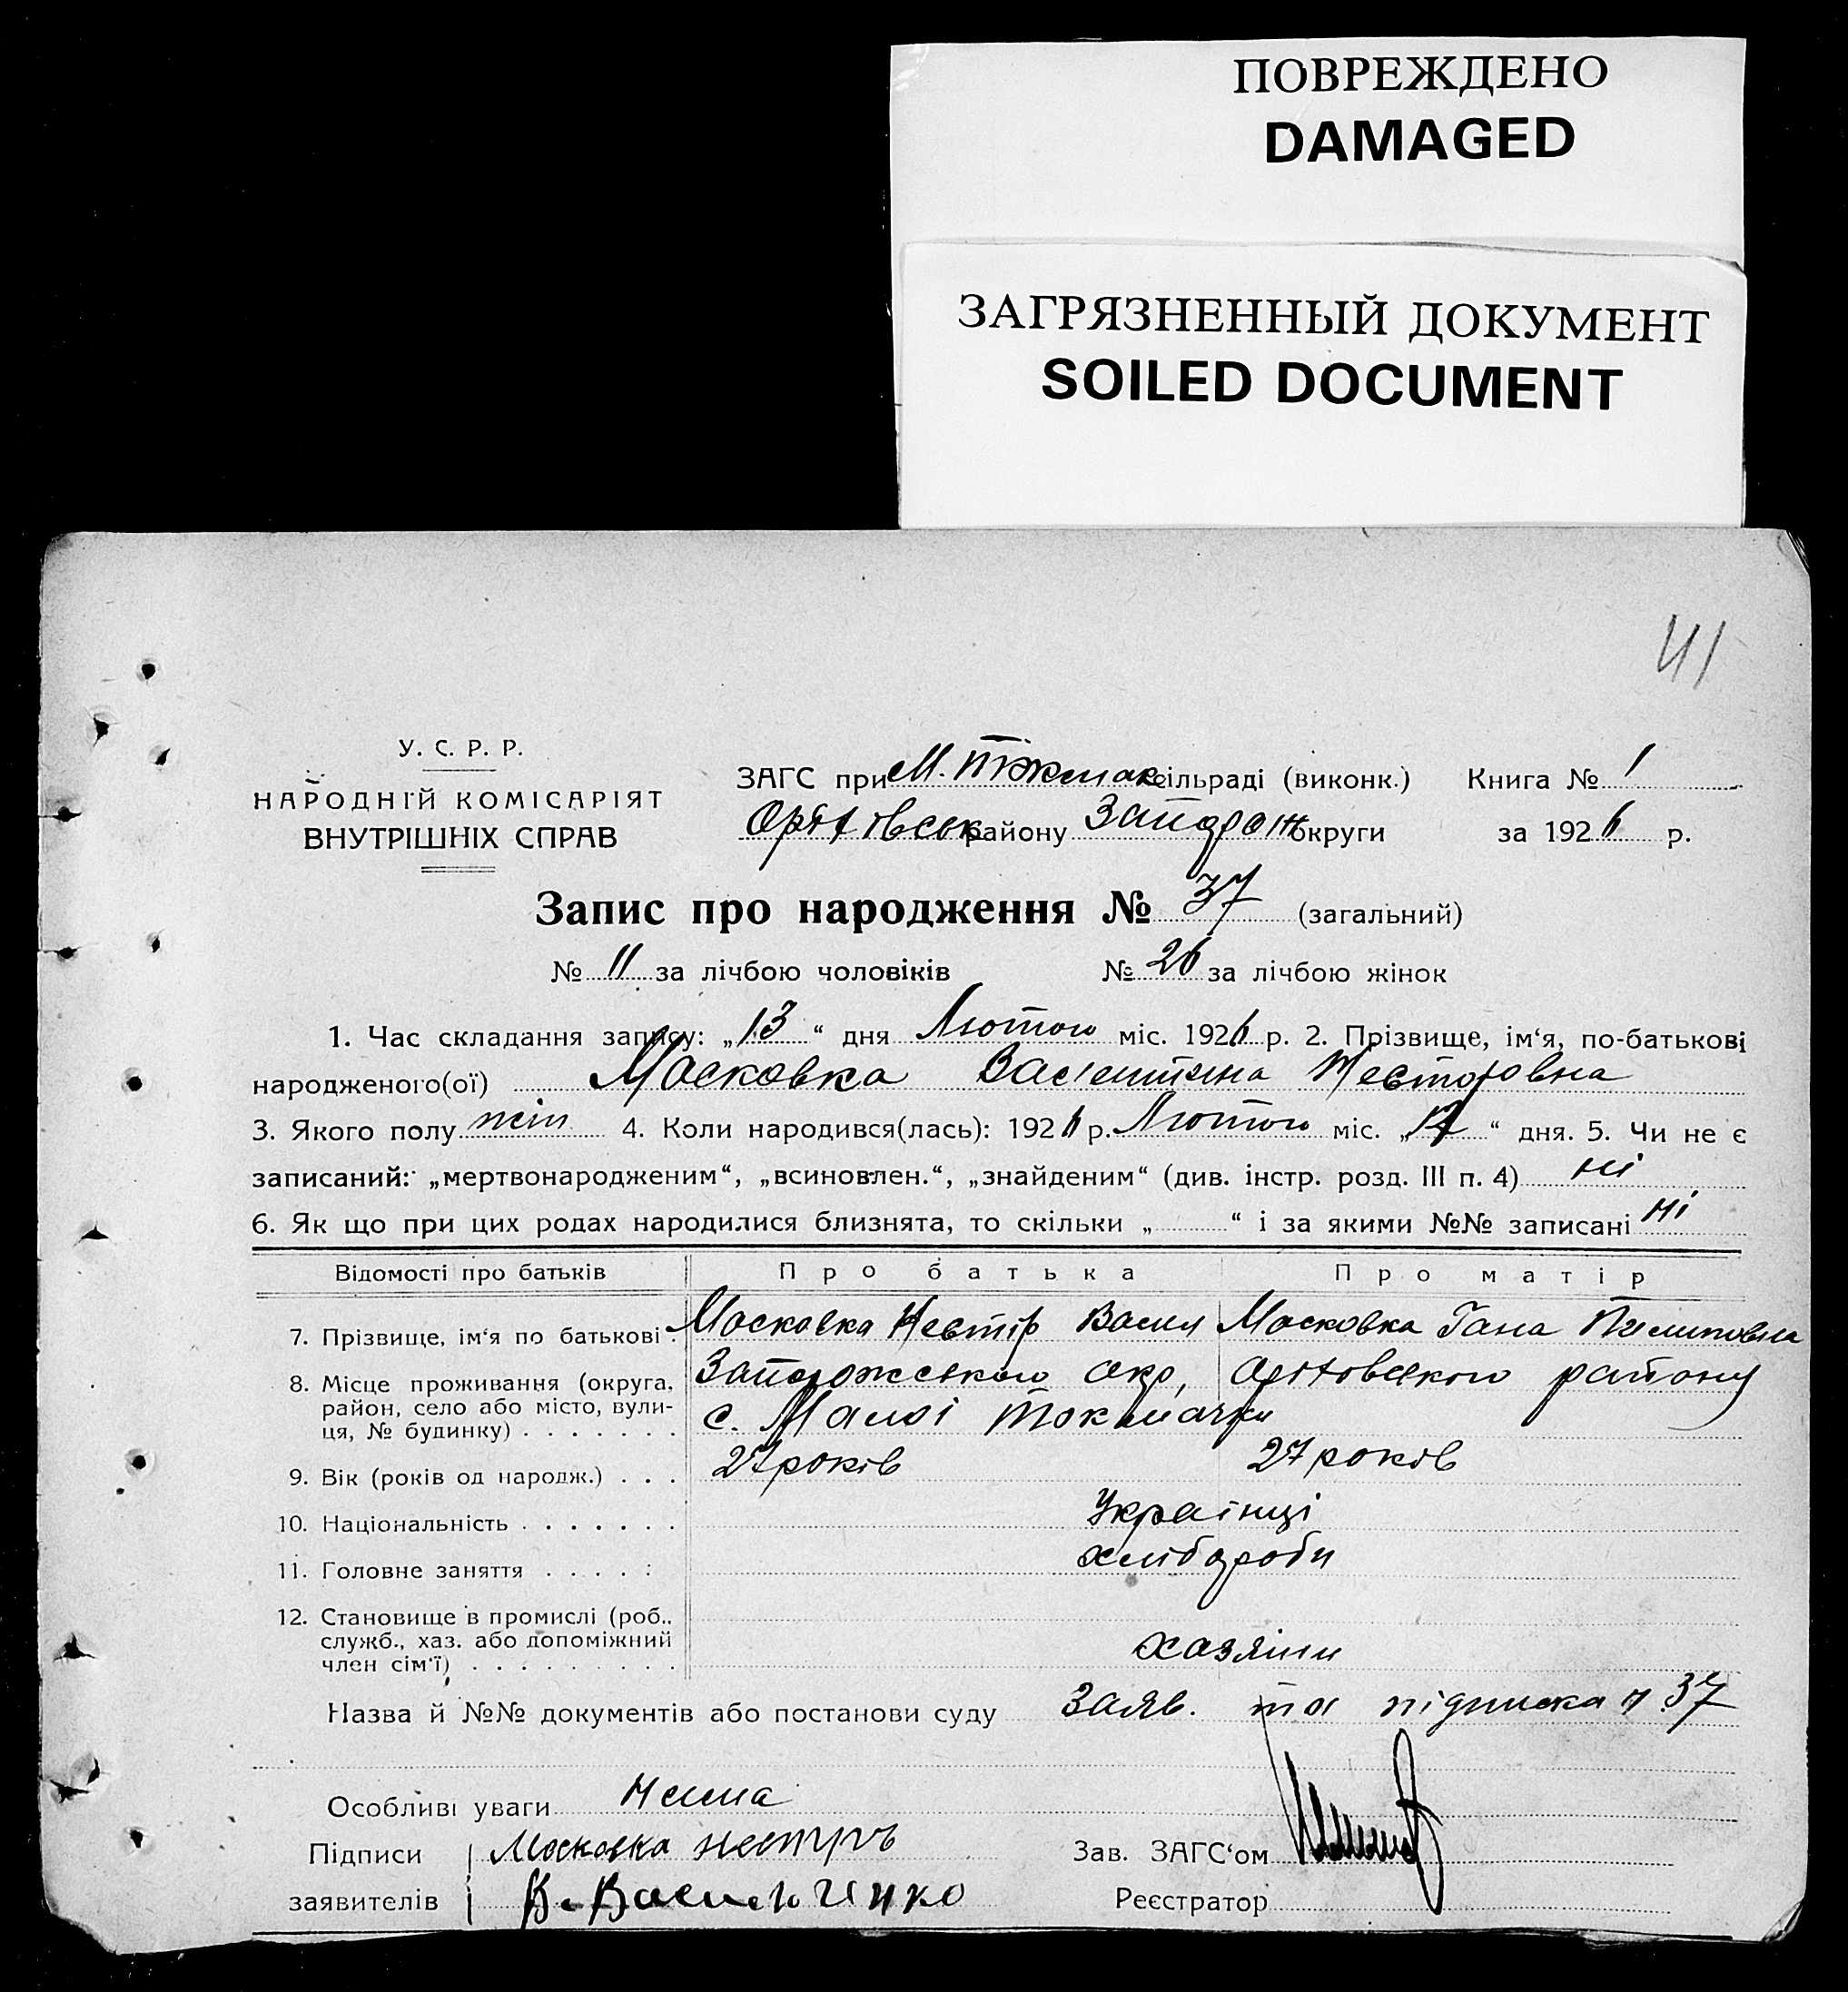 ПОВРЕЖДЕНО
DAMAGED
ЗАГРЯЗНЕННЫЙ ДОКУМЕНТ
SOILED DOCUMENT
41
У. С. Р. Р.
НАРОДНІЙ КОМІСАРІЯТ
ВНУТРІШНІХ СПРАВ
ЗАГС при М. Токмач сільраді (виконк.) Книга № 1
Оріхівськ району Запорож округи за 1926 р.
Запис про народження № 37 (загальний)
№ 11 за лічбою чоловіків № 26 за лічбою жінок
1. Час складання запису: „13“ дня Лютого міс. 1926 р. 2. Прізвище, ім‘я, по-батькові
народженого(ої) Московка Валентина Несторовна
3. Якого полу жін 4. Коли народився(лась): 1926 р. Лютого міс. „12“ дня. 5. Чи не є
записаний: „мертвонародженим“, „всиновлен.“, „знайденим“ (див. інстр. розд. III п. 4) ні
6. Як що при цих родах народилися близнята, то скільки „ “ і за якими №№ записані ні
Відомості про батьків Про батька Про матір
7. Прізвище, ім‘я по батькові. Московка Нестір Васил Московка Гана Пилиповна
8. Місце проживання (округа, Запорожського окр, Оріховського району
район, село або місто, вули- с. Малої Токмачки
ця, № будинку) . . . . . . .
9. Вік (років од народж.) . . . 27 років 27 років
10. Національність . . . . . . . Українці
11. Головне заняття . . . . : хлібороби
12. Становище в промислі (роб.,
служб., хаз. або допоміжний
член сім‘ї) . . . . . . . . . хазяіни
Назва й №№ документів або постанови суду заяв. та підписка № 37
Особливі уваги нема
Підписи Московка Нестуръ Зав. ЗАГС‘ом
заявителів В. Васильченко Реєстратор